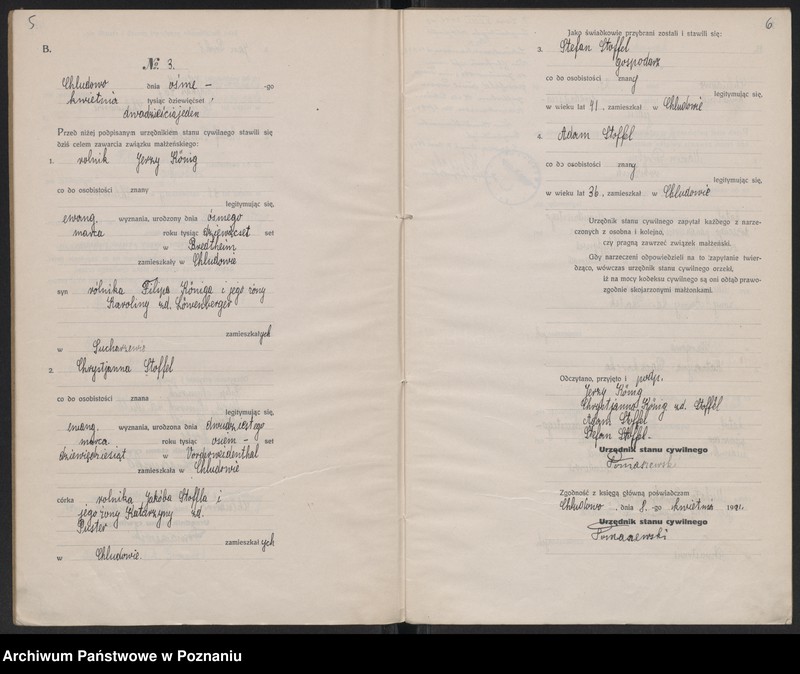 5
B.
№ 3.
Chludowo dnia ósme - -go
kwietnia tysiąc dziewięćset
dwadzieściajeden
Przed niżej podpisanym urzędnikiem stanu cywilnego stawili się
dziś celem zawarcia związku małżeńskiego:
1. rolnik Jerzy König
co do osobistości znany
legitymując się,
ewang. wyznania, urodzony dnia ósmego
marca roku tysiąc dziewięćset set
w Bredtheim
zamieszkały w Chludowie
syn rolnika Filipa Königa i jego żony
Karoliny ud. Löwenberger
zamieszkałych
w Sucharzewie
2. Chrystjanna Stoffel
co do osobistości znana
legitymując się,
ewang. wyznania, urodzona dnia dwudziestego
marca roku tysiąc osiem - set
dziewięćdziesiąt w
zamieszkała w Chludowie
córka rolnika Jakóba Stoffla i
jego żony Katarzyny ud.
Puster
zamieszkałych
w Chludowie.
6
Jako świadkowie przybrani zostali i stawili się:
3. Stefan Stoffel
gospodarz
co do osobistości znany
legitymując się,
w wieku lat 41, zamieszkał w Chludowie
4. Adam Stoffel
co do osobistości znany
legitymując się,
w wieku lat 36, zamieszkał w Chludowie
Urzędnik stanu cywilnego zapytał każdego z narze-
czonych z osobna i kolejno,
czy pragną zawrzeć związek małżeński.
Gdy narzeczeni odpowiedzieli na to zapytanie twier-
dząco, wówczas urzędnik stanu cywilnego orzekł,
iż na mocy kodeksu cywilnego są oni odtąd prawo-
zgodnie skojarzonymi małżonkami.
Odczytano, przyjęto i podp.
Jerzy König
Chrystjanna König ud. Stoffel
Adam Stoffel
Stefan Stoffel -
Urzędnik stanu cywilnego
Tomaszewski
Zgodność z księgą główną poświadczam
Chludowo, dnia 8. -go kwietnia 1921.
Urzędnik stanu cywilnego
Tomaszewski
Archiwum Państwowe w Poznaniu